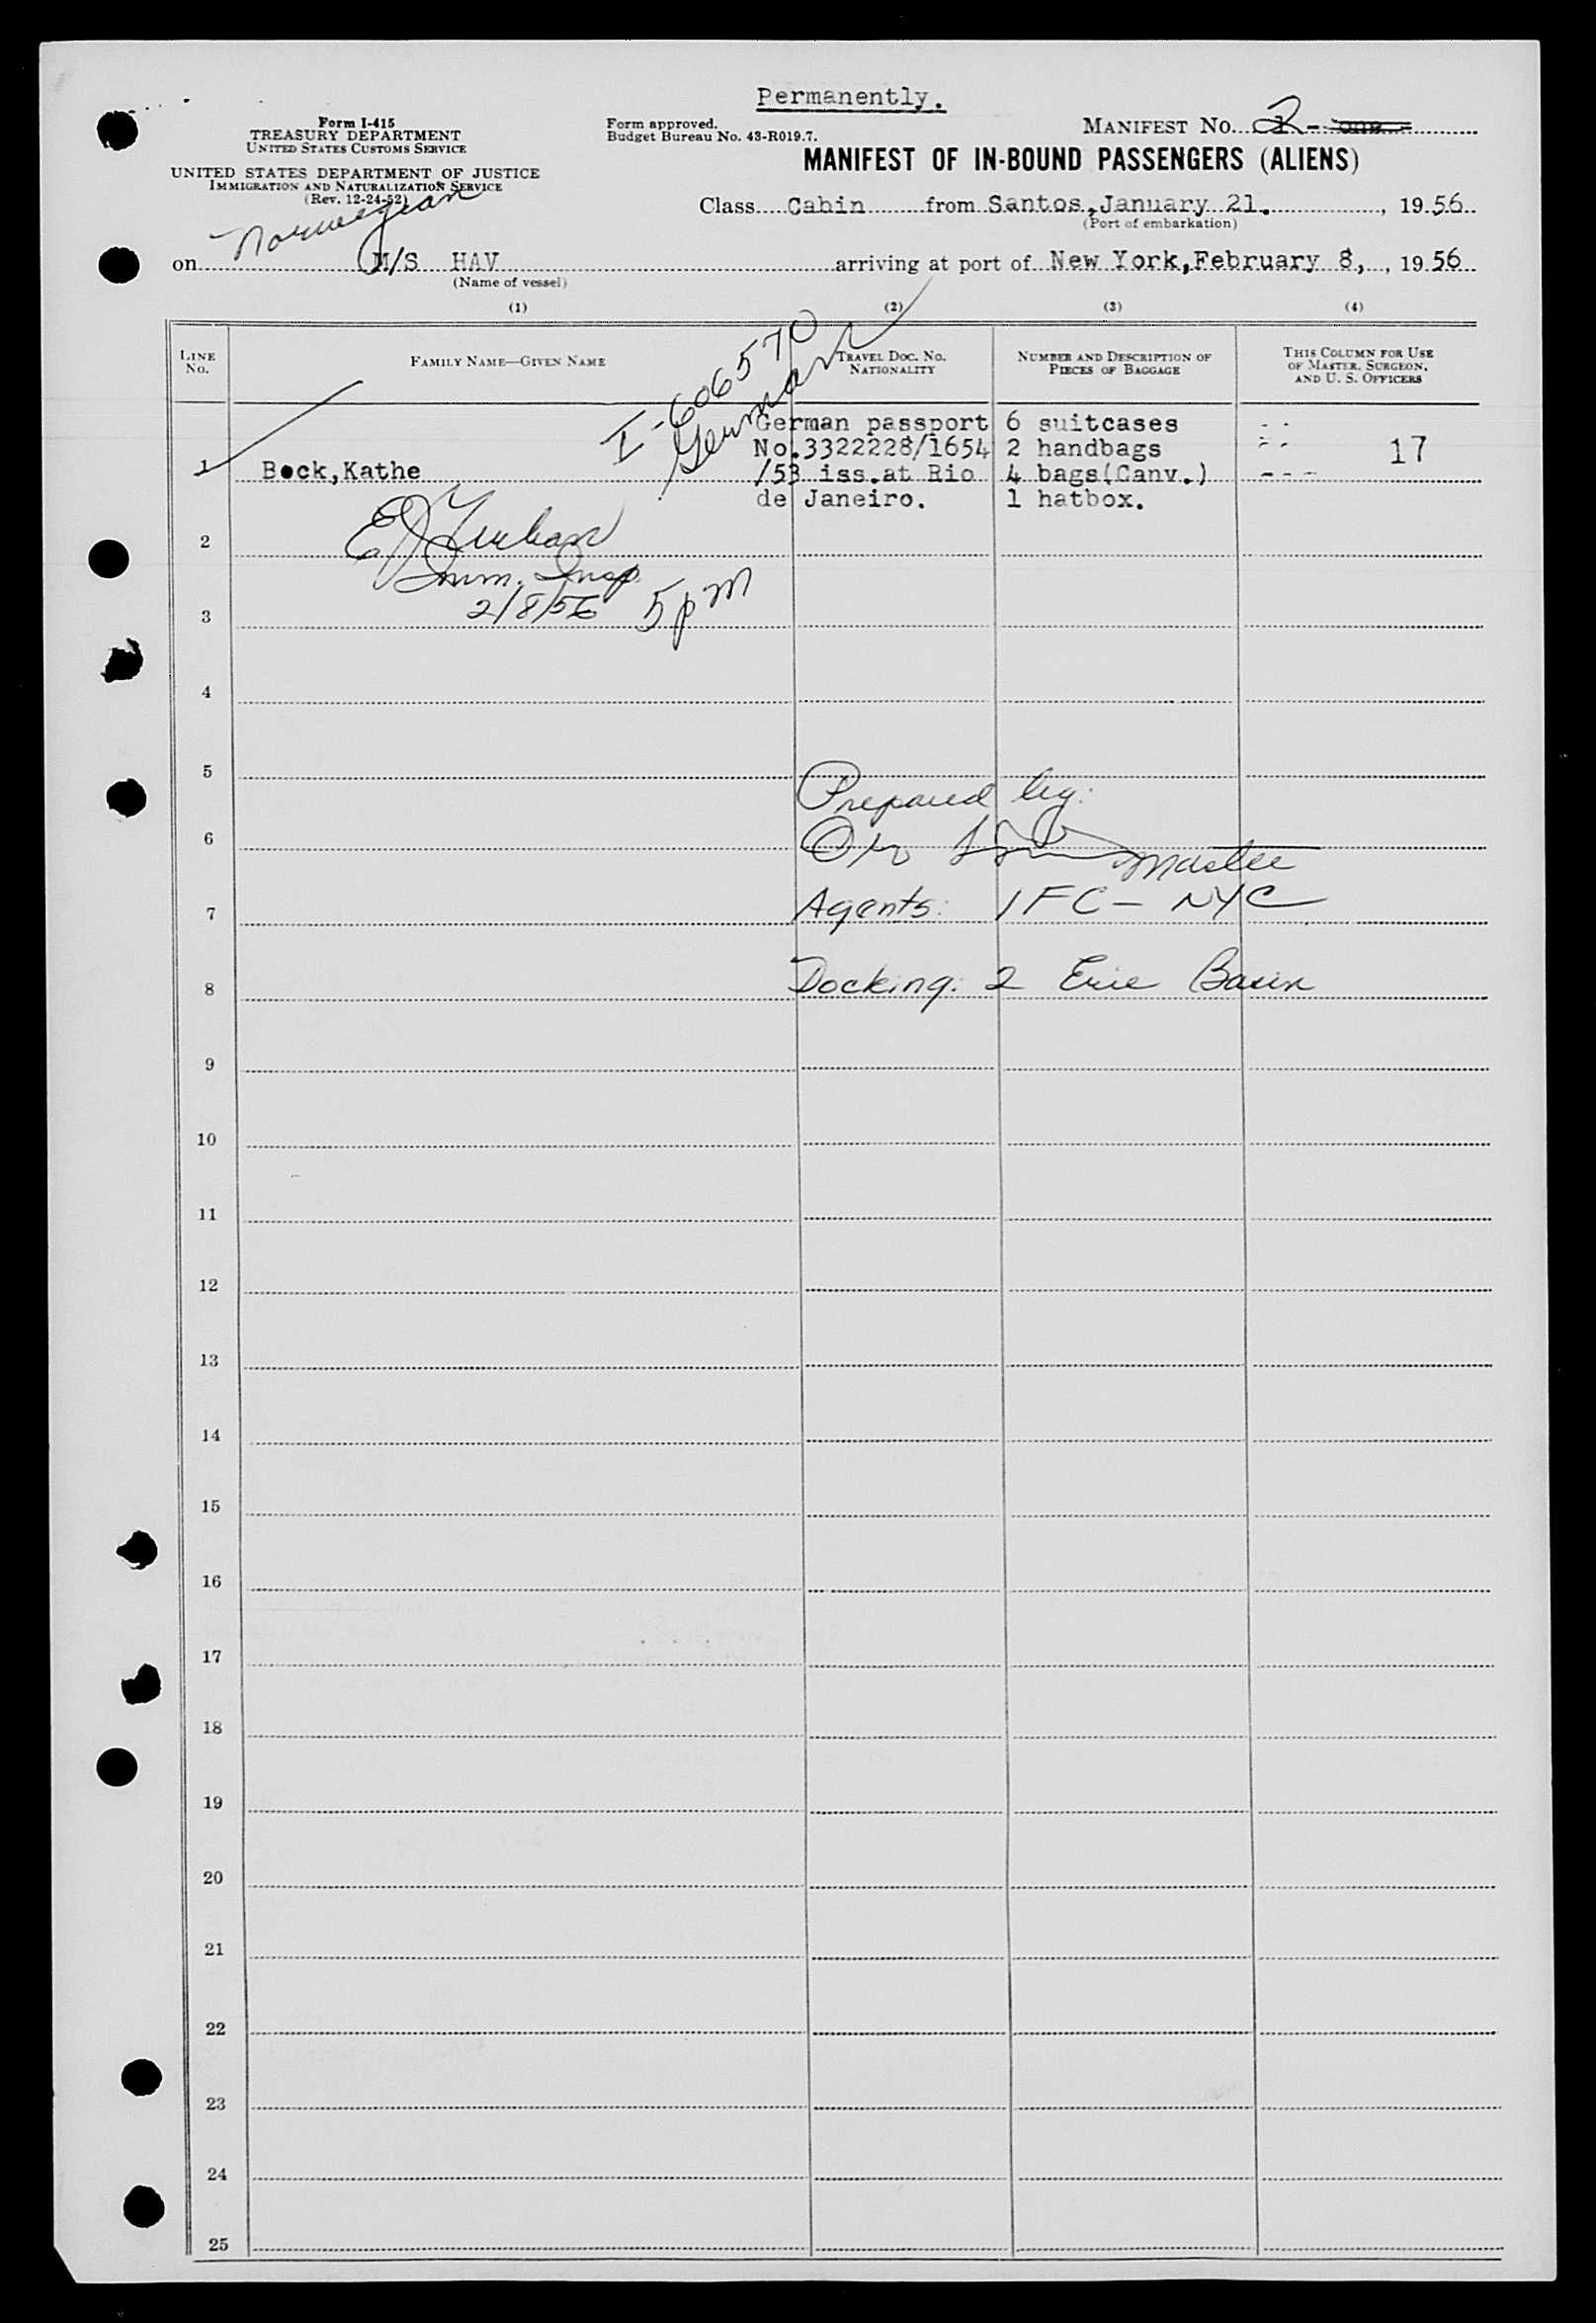 Permanently.
Form I-415
TREASURY DEPARTMENT
UNITED STATES CUSTOMS SERVICE
UNITED STATES DEPARTMENT OF JUSTICE
IMMIGRATION AND NATURALIZATION SERVICE
(Rev. 12-24-52)
Form approved.
Budget Bureau No. 43-R019.7.
MANIFEST NO. 2
MANIFEST OF IN-BOUND PASSENGERS (ALIENS)
Class Cabin from Santos, January 21. , 1956
(Port of embarkation)
Norwegian
on M/S HAV arriving at port of New York, February 8, , 1956
(Name of vessel)
(1) (2) (3) (4)
LINE NO. FAMILY NAME—GIVEN NAME TRAVEL DOC. NO. NATIONALITY NUMBER AND DESCRIPTION OF PIECES OF BAGGAGE THIS COLUMN FOR USE OF MASTER, SURGEON, AND U. S. OFFICERS
I-606570
German
German passport 6 suitcases
No.3322228/1654 2 handbags 17
1 Bock,Kathe /53 iss.at Rio 4 bags(Canv.)
de Janeiro. 1 hatbox.
2
Imm. Insp.
3 2/8/56 5 pm
4
5
Prepared by:
6
Master
7 Agents: IFC - NYC
8 Docking: 2 Erie Basin
9
10
11
12
13
14
15
16
17
18
19
20
21
22
23
24
25